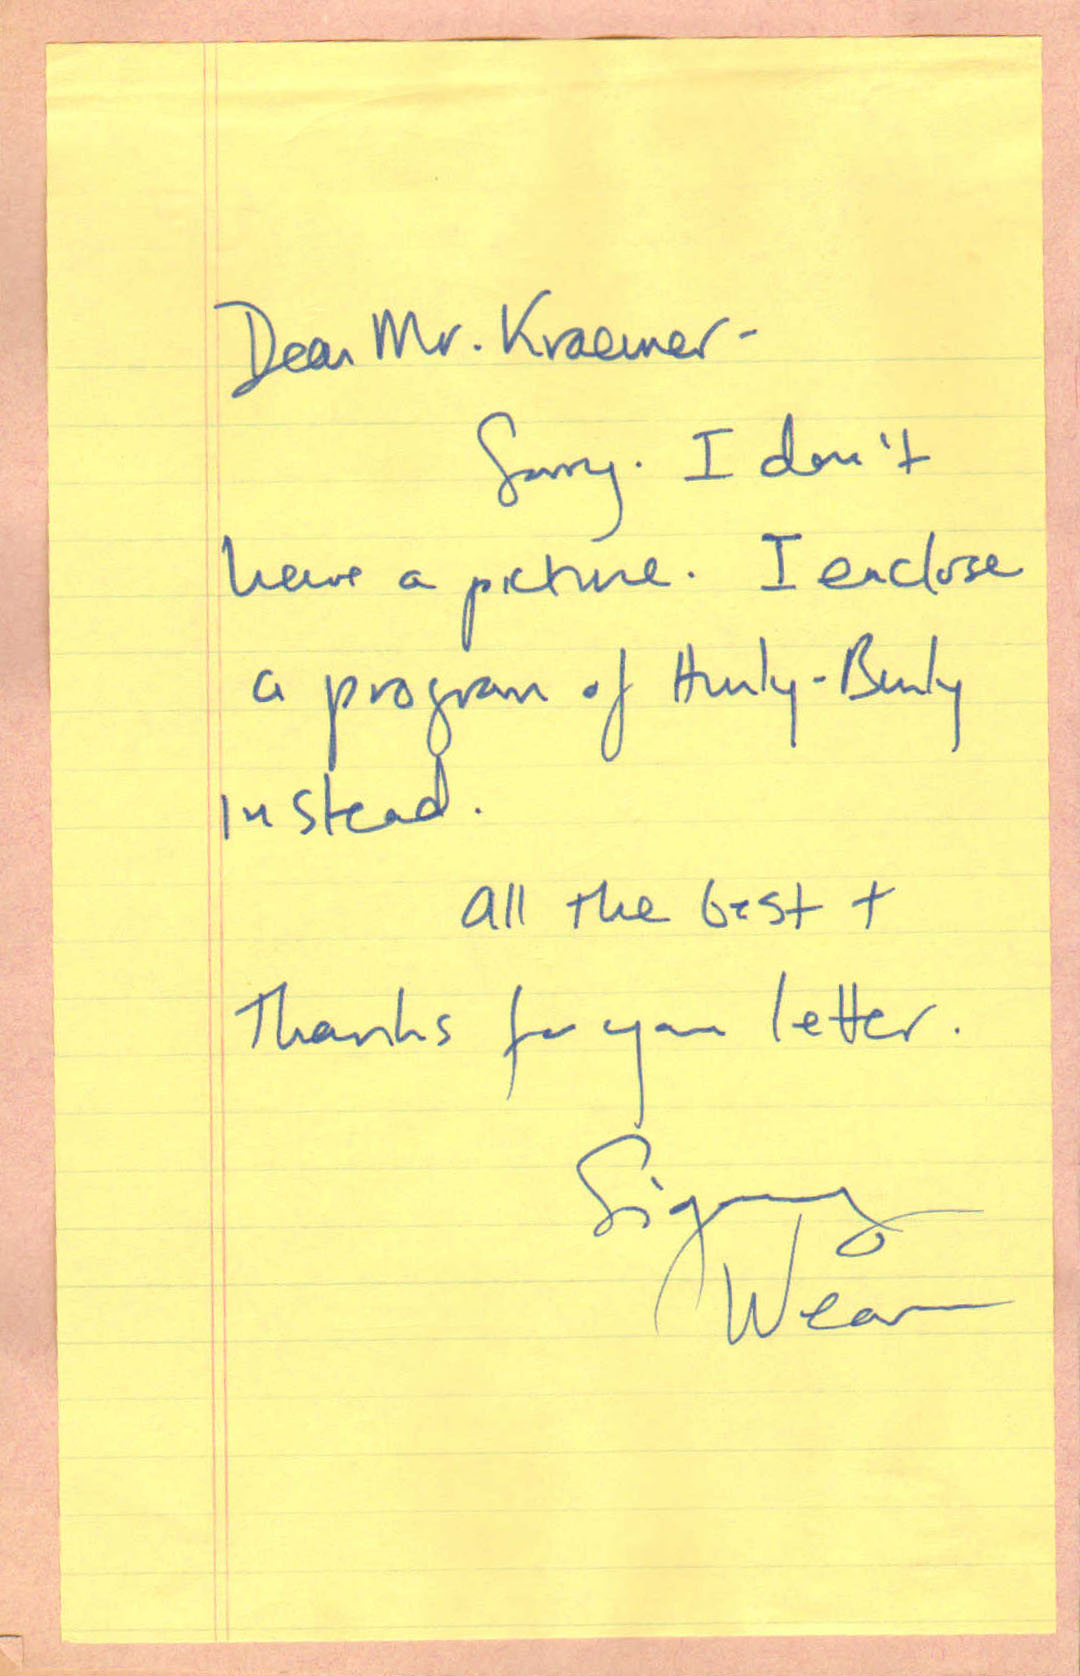 Dear Mr. Kraemer-
Sorry. I don't
have a picture. I enclose
a program of Hurly-Burly
instead.
all the best +
Thanks for your letter.
Sigourney
Weaver